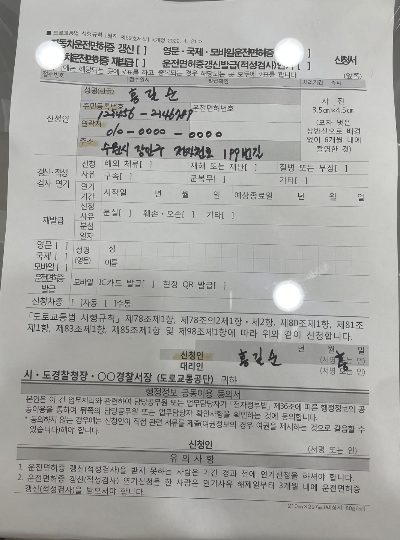 자동차운전면허증 갱신 [ ] 영문·국제·모바일운전면허증
자동차운전면허증 재발급[ ] 운전면허증갱신발급(적성검사)연기[ ] 신청서
(앞쪽)
성명(한글) 홍길순
주민등록번호 운전면허번호
123456 - 2146789
연락처
010-0000-0000
주소 수원시 장안구
신청인
사 진
3.5cm×4.5cm
(모자 벗은
상반신으로 배경
없이 6개월 내에
촬영한 것)
갱신·적성
검사 연기
신청
사유
해외 체류[ ] 재해 또는 재난[ ] 질병 또는 부상[ ]
구속[ ] 군복무[ ] 기타[ ]
연기
기간
시작일 년 월 일 예상종료일 년 월 일
재발급
신청
사유
분실[ ] 훼손·오손[ ] 기타[ ]
분실
일자
영문[ ]
국제[ ]
모바일[ ]
성명
(영문)
성
이름
운전면허증
발급
모바일 IC카드 발급[ ] 현장 QR 발급[ ]
신청차종 [ ]자동 [ ]수동
「도로교통법 시행규칙」 제78조제1항, 제78조의2제1항·제2항, 제80조제1항, 제81조
제1항, 제83조제1항, 제85조제1항 및 제98조제1항에 따라 위와 같이 신청합니다.
년 월 일
신청인 홍길순 (서명 또는 인) 홍
대리인 (서명 또는 인)
시·도경찰청장·○○경찰서장 (도로교통공단) 귀하
행정정보 공동이용 동의서
본인은 이 건 업무처리와 관련하여 담당공무원 또는 업무담당자가 「전자정부법」 제36조에 따른 행정정보의 공
동이용을 통하여 뒤쪽의 담당공무원 또는 업무담당자 확인사항을 확인하는 것에 동의합니다.
* 동의하지 않는 경우에는 신청인이 직접 관련 서류를 제출(여권정보의 경우 여권을 제시하는 것으로 갈음할 수
있습니다)해야 합니다.
신청인 (서명 또는 인)
유의사항
1. 운전면허증 갱신(적성검사)을 받지 못하는 사람은 기간 경과 전에 연기신청을 하셔야 합니다.
2. 운전면허증 갱신(적성검사) 연기신청을 한 사람은 연기사유 해제일부터 3개월 내에 운전면허증
갱신(적성검사)을 받으셔야 합니다.